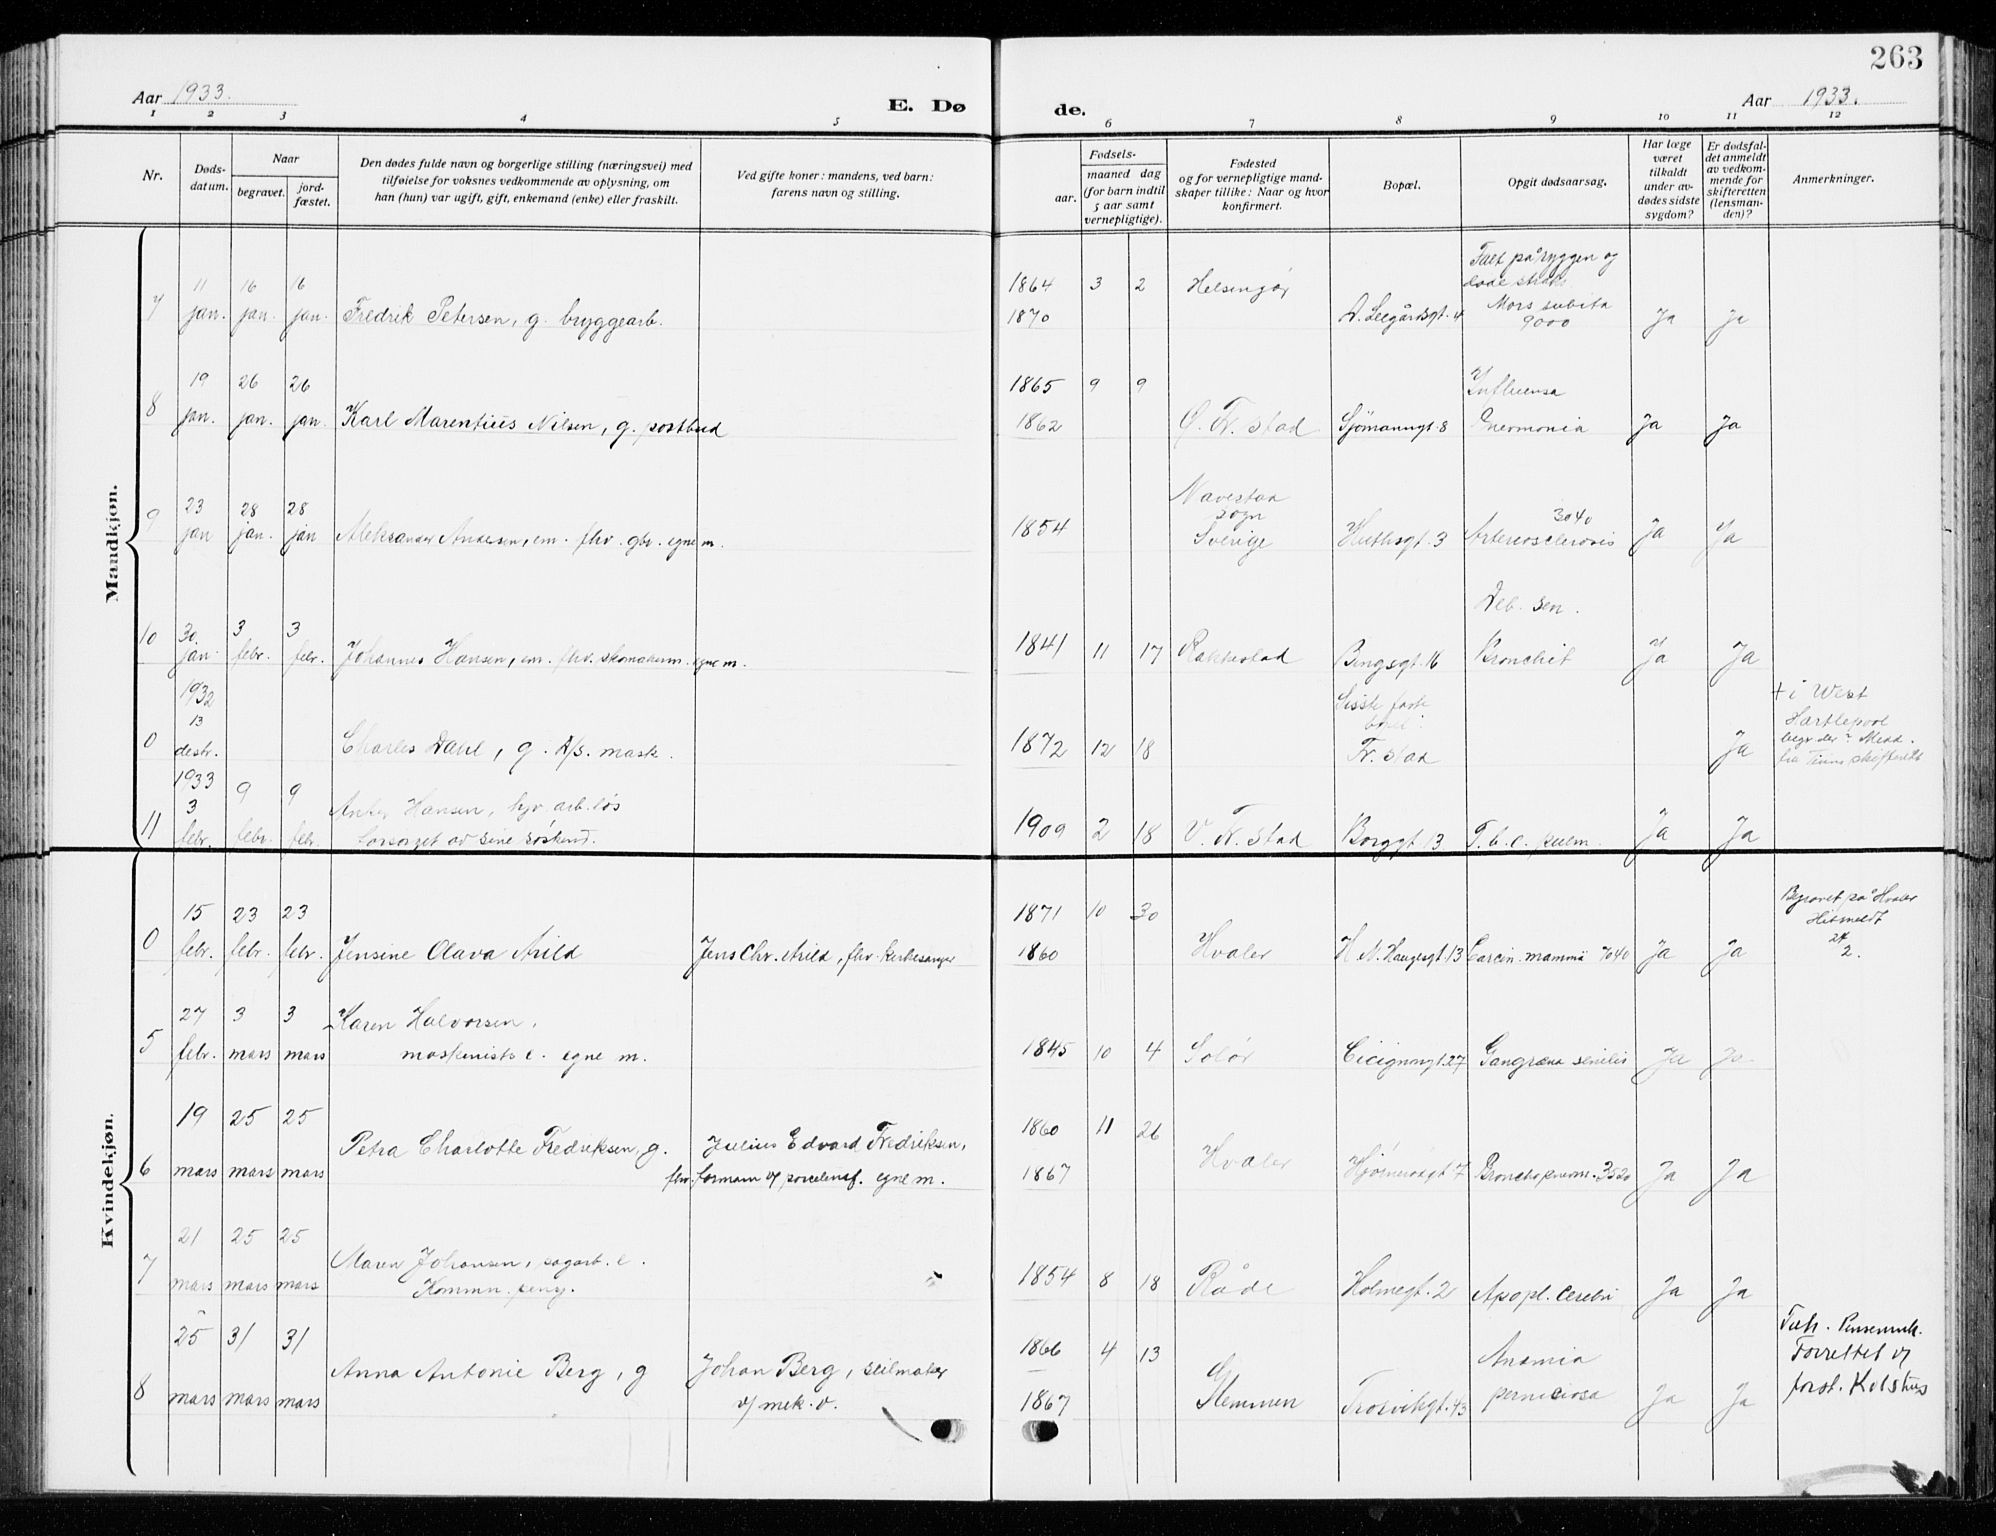 263
Aar 1933.
E. Dø de.
Aar 1933.
1 2 3 4 5 6 7 8 9 10 11 12
Nr.
Døds-
datum.
Naar
begravet.
jord-
fæstet.
Den dødes fulde navn og borgerlige stilling (næringsvei) med
tilføielse for voksnes vedkommende av oplysning, om
han (hun) var ugift, gift, enkemand (enke) eller fraskilt.
Ved gifte koner: mandens, ved barn:
farens navn og stilling.
Fødsels-
aar.
maaned dag
(for barn indtil
5 aar samt
vernepligtige).
Fødested
og for vernepligtige mand-
skaper tillike: Naar og hvor
konfirmert.
Bopæl.
Opgit dødsaarsag.
Har læge
været
tilkaldt
under av-
dødes sidste
sygdom?
Er dødsfal-
det anmeldt
av vedkom-
mende for
skifteretten
(lensman-
den)?
Anmerkninger.
Mandkjøn.
7
11 jan.
16 jan.
16 jan.
Fredrik Petersen, g. bryggearb.
1864 3 2
1870
Helsingør
Falt på ryggen og
døde straks.
Mors subita
9000
Ja
Ja
8
19 jan.
26 jan.
26 jan.
Karl Marentius Nilsen, g. postbud
1865 9 9
1862
Ø. Fr.stad
Sjömanngt. 8
Influensa
Pnevmonia
Ja
Ja
9
23 jan
28 jan.
28 jan
Aleksander Andersen, em. fhv. gbr. egne m.
1854
Navestad
sogn
Sverige
Huthsgt. 3
3040
Arteriosclerosis
Ja
Ja
10
30. jan.
3 febr.
3 febr.
Johannes Hansen, em. fhv. skomakerm. egne m.
1841 11 17
Rakkestad
Bingsgt. 16
Deb. sen.
Bronchit
Ja
Ja
0
1932
13
desbr.
Charles Dahl, g. D/S. mask.
1872 12 18
Siste faste
bopel:
Fr.stad
Ja
+ i West
Hartlepool
begr. der. Medd.
fra skifterett
11
1933
3
febr.
9 febr.
9 febr.
Hansen, hjv. arb.løs
forsørget av sine søskend.
1909 2 18
V. Fr.stad
Borggt. 13
T.b.c. pulm.
Ja
Ja
Kvindekjøn.
0
15 febr.
23 febr.
23 febr.
Jensine Olava Arild
Jens Chr. Arild, fhv. kirkesanger
1871 10 30
1860
Hvaler
H. N. Haugesgt. 13
Carcin. mammä 7040
Ja
Ja
Begravet på Hvaler
Hitmeldt
24
2.
5
27 febr.
3 mars
3 mars
Karen Halvorsen,
maskinists e. egne m.
1845 10 4
Solör
Cicignongt. 27
Gangræna senilis
Ja
Ja
6
19 mars
25 mars
25 mars
Petra Charlotte Fredriksen, g.
Julius Edvard Fredriksen,
fhv. formann v/ porcelensf. egne m.
1860 11 26
1867
Hvaler
Bronchopnevm. 3520
Ja
Ja
7
21 mars
25 mars
25 mars
Maren Johansen, sagarb. e.
Kommu. peng.
1854 8 18
Råde
Holmegt. 2
Apopl. cerebri
Ja
Ja
8
25 mars
31 mars
31 mars
Anna Antonie Berg, g
Johan Berg, seilmaker
v/ mek. v.
1866 4 13
1867
Glemmen
Trosvikgt. 43
Anämia
perniciosa
Ja
Ja
Forrettet v/
forst. Kolstrup